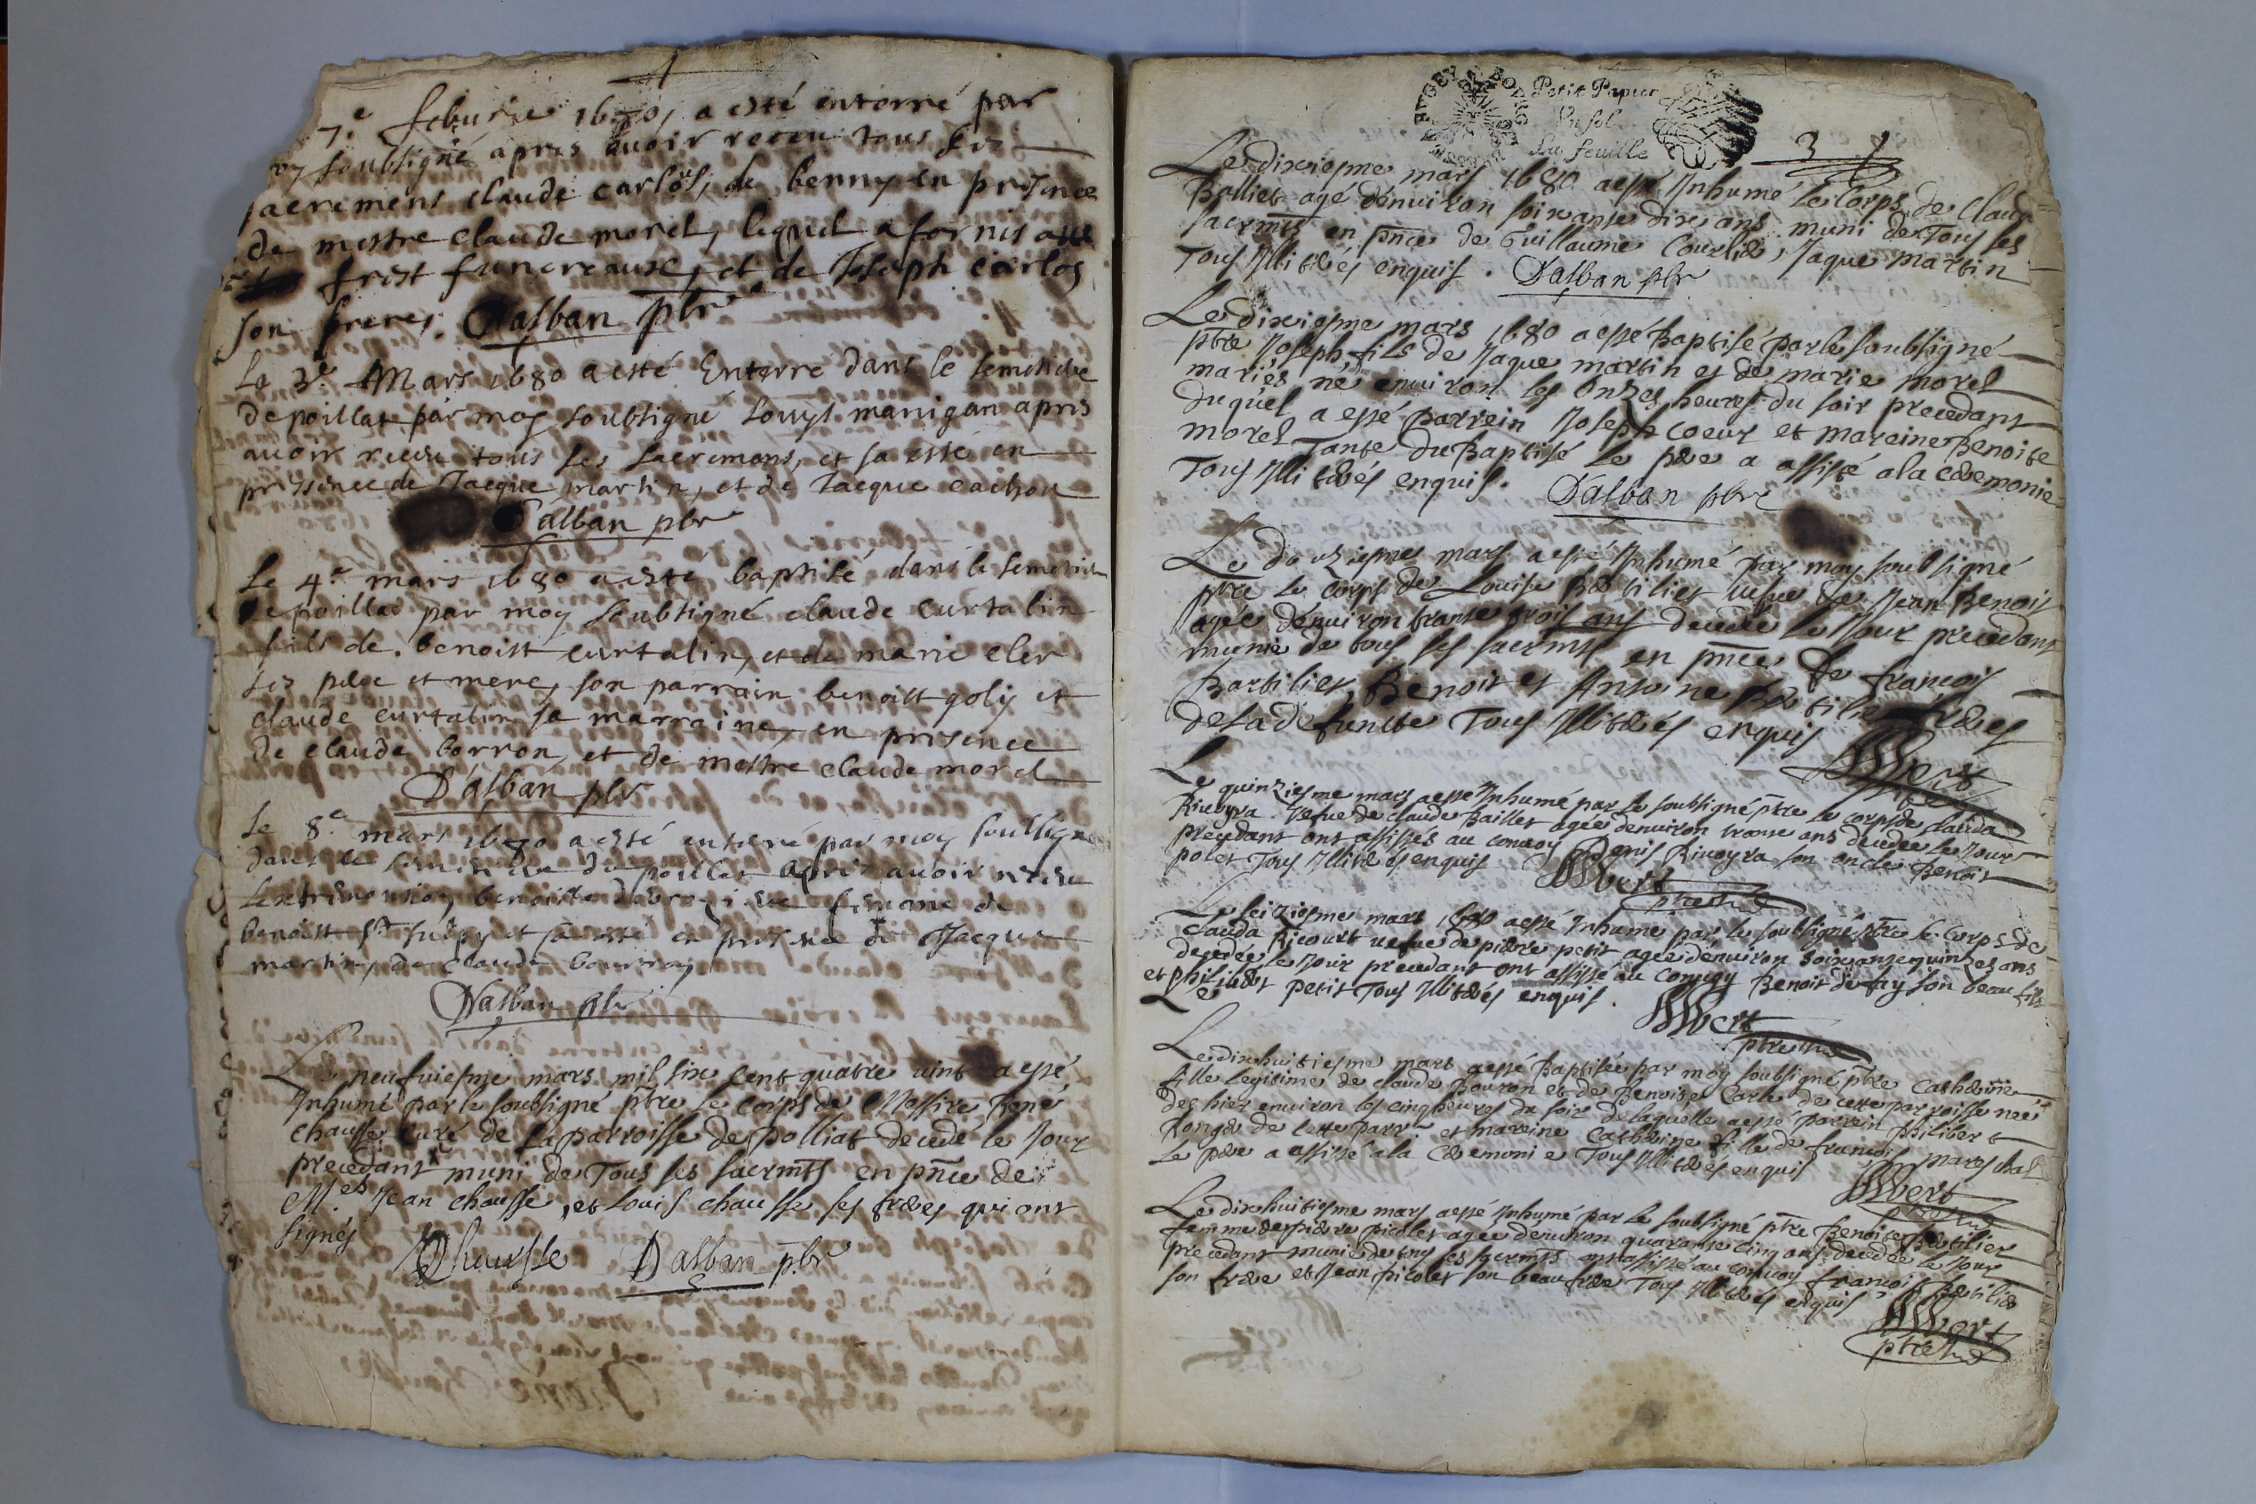 7.e feburie 1680, a esté enterré par
moy soubsigné apres avoir receu tous ses
sacremens claude carlos, de benny en presence
de mestre claude morel, lequel a fornis aux
frest funereaux, et de Joseph carlos
son frere, Dalban pbr
Le 3.e Mars 1680 a esté Enterré dans le semetiere
de poillat par moy soubsigné Louys manigan apres
avoir receu tous ses sacremens, et sa esté en
presence de Jacque martin, et de Jacque cachon
Dalban pbr
Le 4.e mars 1680 a esté baptisé dans le semetiere
de poillat par moy soubsigné claude curtalin
fils de benoist curtalin, et de marie cler
ses pere et mere, son parrain benoist goly et
claude curtalin sa marraine, en presence
de claude borron, et de mestre claude morel
Dalban pbr
Le 8.e mars 1680 a esté enterré par moy soubsigné
dans le semetiere de poillat apres avoir receu
lextremontion benoiste femme de
benoist et sa esté en presence de Jacque
martin, de claude bourron
Dalban pbr
Le neufviesme mars mil six cent quatre vint a esté
Inhumé par le soubsigné ptre le corps de Messire René
Chausse Curé de la parroisse de polliat decedé le Jour
precedant muni de Tous ses sacrmts en pnce de
M.es Jean Chausse, et Louis chausse ses freres qui ont
signés
Chausse Dalban pbr
Petit Papier
Un sol
La feuille
3
Le dixiesme mars 1680 a esté Inhumé le Corps de Claude
Balliet agé denviron soixante dix ans muni de Tous les
sacrmts en pnce de Guillaume Courtid, Jaque martin
Tous Illiterés enquis. Dalban pbr
Le dixiesme mars 1680 a esté Baptisé par le soubsigné
ptre Joseph fils de Jaque martin et de marie morel
mariés né environ les onzes heures du soir precedant
duquel a esté parrein Joseph Coeur et mareine Benoite
morel Tante du Baptisé le pere a assisté a la ceremonie
Tous Illiterés enquis. Dalban pbr
Le douziesme mars a esté Inhumé par moy soubsigné
ptre le corps de Louise Bertilier vefve de Jean Benoit
agée denviron trante trois ans decedée le Jour precedant
munie de tous ses sacrmts en pnce de francois
Bartilier, Benoit et Antoine Bertilier freres
de la defuncte Tous Illiterés enquis
Le quinziesme mars a esté Inhumé par le soubsigné ptre le corps de Clauda
Rivoyra vefve de claude Baillet agée denviron trante ans decedée le Jour
precedant ont assistés au convoy Denis Rivoyra son oncle Benoit
polet Tous Illiterés enquis
Le seiziesme mars 1680 a esté Inhumé par le soubsigné ptre le Corps de
Clauda Ricourt vefve de pierre petit agée denviron soixante quinzes ans
decedée le Jour precedant ont assisté au convoy Benoit dufay son beau fils
et philibert petit Tous Illiterés enquis.
Le dixhuitiesme mars a esté Baptisée par moy soubsigné ptre Catherine
fille legitime de claude Bouron et de Benoite Carle de cette parroisse née
des hier environ les cinq heures du soir de laquelle a esté parrein philibert
Ronger de cette parr. et mareine Catherine fille de francois mareschal
le pere a assisté a la ceremonie Tous Illiterés enquis
Le dixhuitiesme mars a esté Inhumé par le soubsigné ptre Benoite Bertilier
femme de pierre picolet agée denviron quarante cinq ans decedée le Jour
precedant munie de tous ses sacrmts ont assisté au convoy francois Bertilier
son frere et Jean picolet son beau frere Tous Illiterés enquis